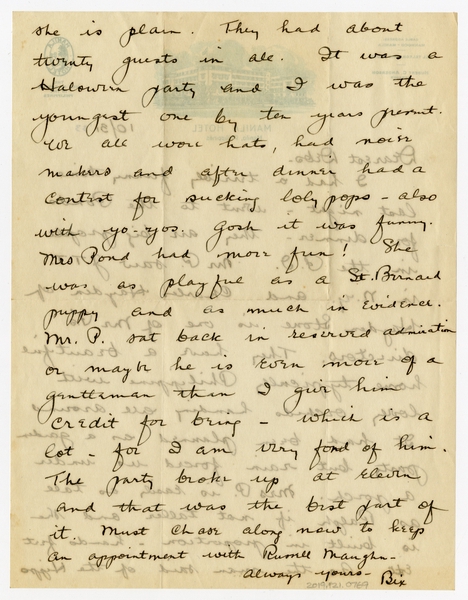 she is plain. They had about
twenty guests in all. It was a
Halowe'n party and I was the
youngest one by ten years present.
We all wore hats, had noise
makers and after dinner had a
contest for sucking loly pops - also
with yo-yos. Gosh it was funny.
Mrs Pond had more fun! She
was as playful as a St. Bernard
puppy and as much in evidence.
Mr. P. sat back in reserved admiration
or maybe he is even more of a
gentleman than I give him
credit for being - which is a
lot - for I am very fond of him.
The party broke up at eleven
and that was the best part of
it. Must chase along now to keep
an appointment with Russell Maughn -
always yours - Bix